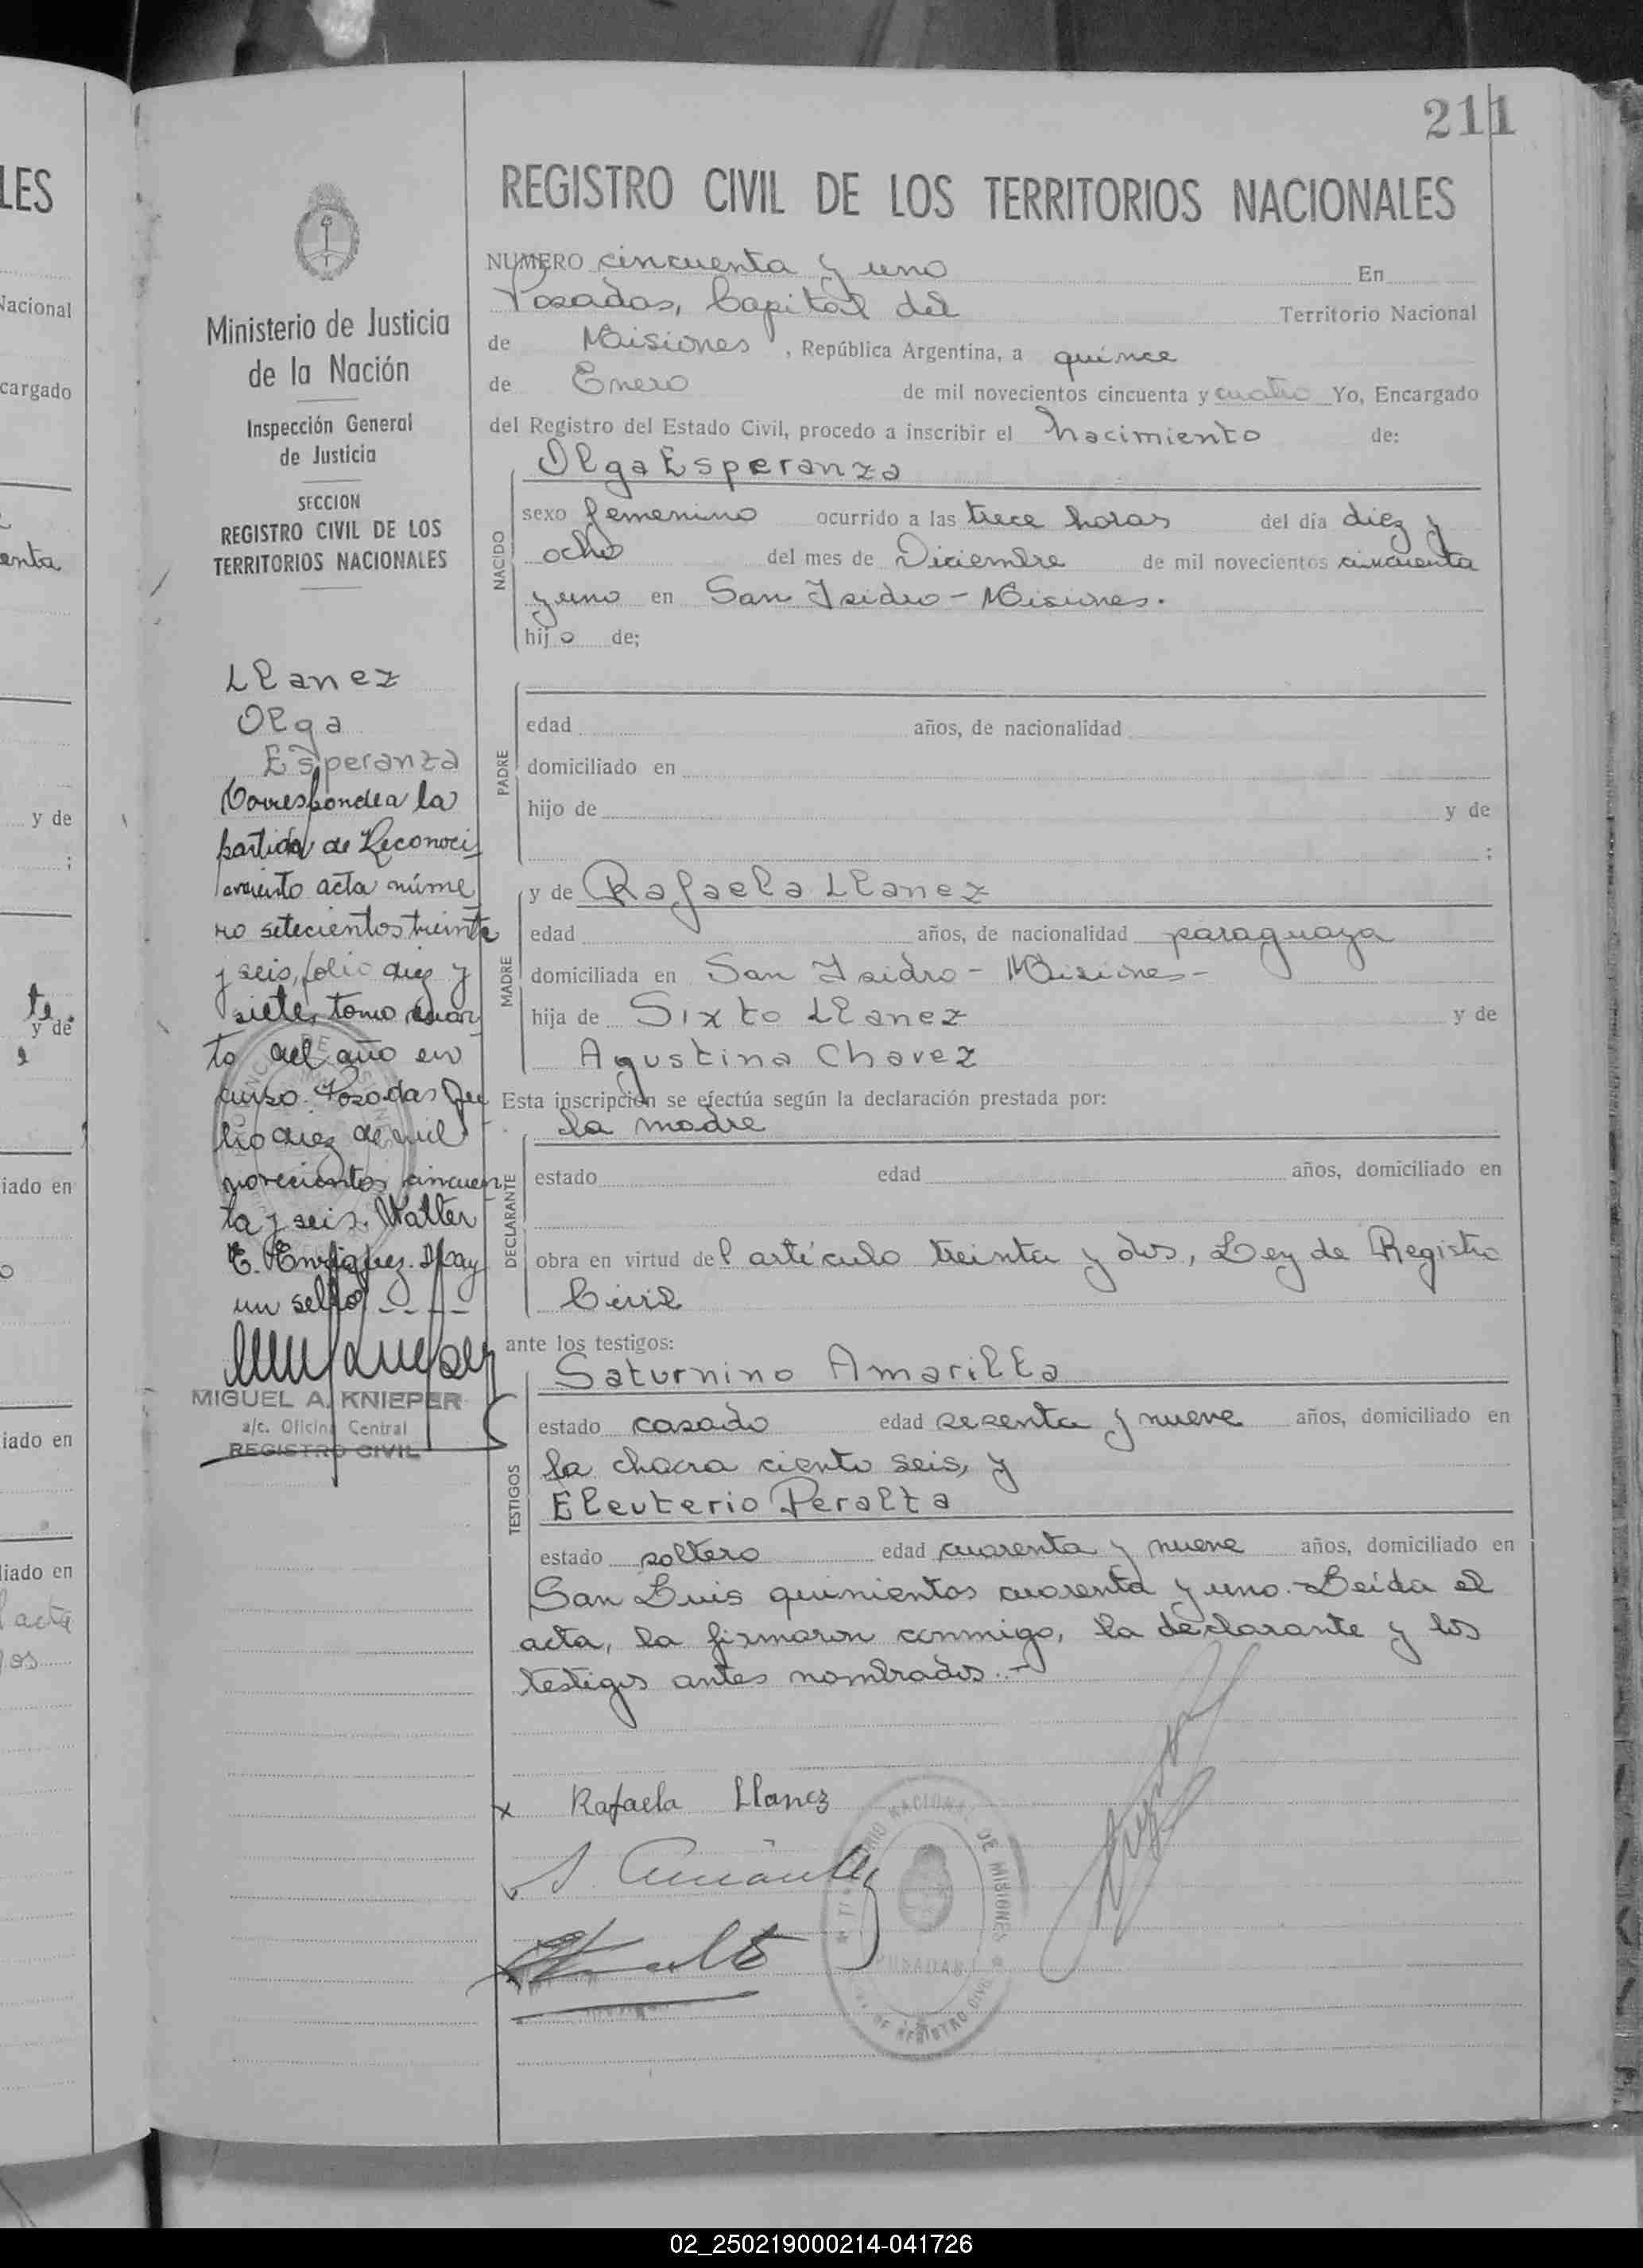 211
LES
Nacional
cargado
enta
y de
;
te.
y de
iado en
iado en
liado en
acta
REGISTRO CIVIL DE LOS TERRITORIOS NACIONALES
Ministerio de Justicia
de la Nación
Inspección General
de Justicia
SECCION
REGISTRO CIVIL DE LOS
TERRITORIOS NACIONALES
Llanez
Olga
Esperanza
Corresponde a la
partida de Reconoci
miento acta núme
ro setecientos treinta
y seis, folio diez y
siete, tomo cuar
to del año en
curso. Posadas Ju
lio diez de mil
novecientos cincuen
ta y seis. Walter
E. Enriquez. Hay
un sello - - - -
MIGUEL A. KNIEPER
a/c. Oficina Central
REGISTRO CIVIL
NUMERO cincuenta y uno En
Posadas, Capital del Territorio Nacional
de Misiones, República Argentina, a quince
de Enero de mil novecientos cincuenta y cuatro Yo, Encargado
del Registro del Estado Civil, procedo a inscribir el nacimiento de:
NACIDO
Olga Esperanza
sexo femenino ocurrido a las trece horas del día diez y
ocho del mes de Diciembre de mil novecientos cincuenta
y uno en San Isidro - Misiones.
hijo de;
PADRE
edad años, de nacionalidad
domiciliado en
hijo de y de
;
MADRE
y de Rafaela Llanez
edad años, de nacionalidad paraguaya
domiciliada en San Isidro - Misiones -
hija de Sixto Llanez y de
Agustina Chavez
Esta inscripción se efectúa según la declaración prestada por:
DECLARANTE
la madre
estado edad años, domiciliado en
obra en virtud del artículo treinta y dos, Ley de Registro
Civil
ante los testigos:
TESTIGOS
Saturnino Amarilla
estado casado edad sesenta y nueve años, domiciliado en
la chacra ciento seis, y
Eleuterio Peralta
estado soltero edad cuarenta y nueve años, domiciliado en
San Luis quinientos cuarenta y uno. Leída el
acta, la firmaron conmigo, la declarante y los
testigos antes nombrados. -
x Rafaela Llanez
NACIONAL DE MISIONES
POSADAS
DE REGISTRO CIVIL
02_250219000214-041726